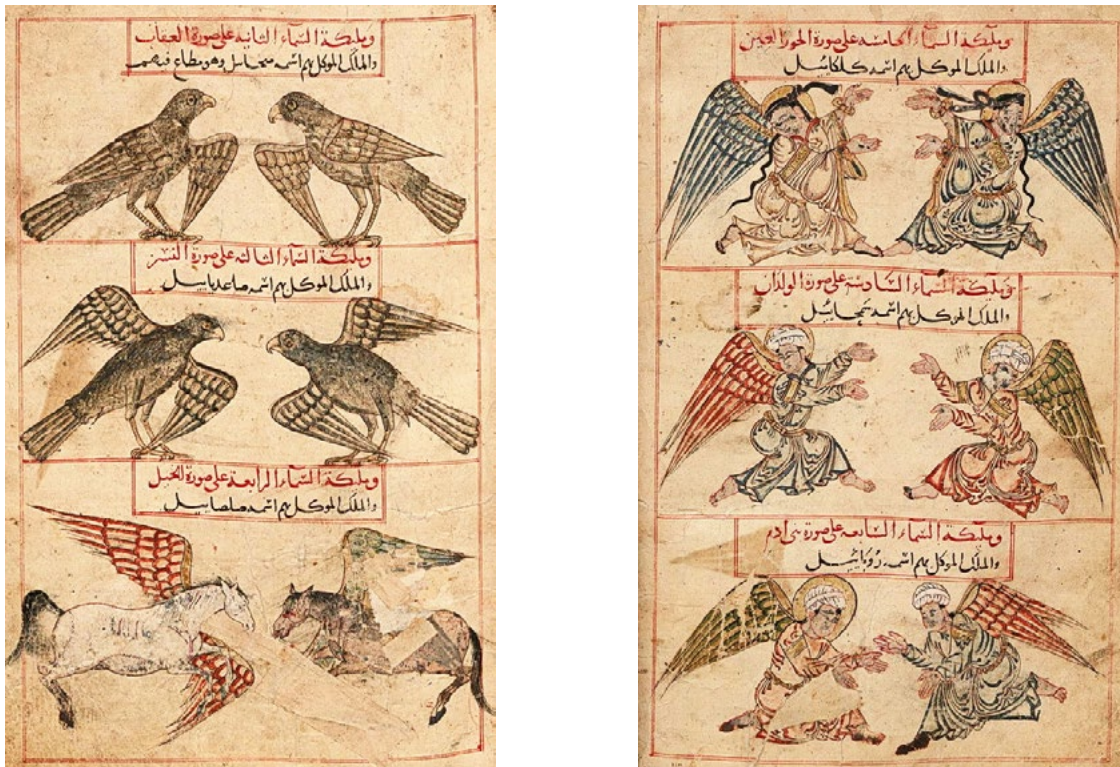 ومليكة السماء الثانية على صورة العقاب
والملك الموكل بهم اسمه ميخاييل وهو مطاع فيهم
ومليكة السماء الثالثه على صورة النسر
والملك الموكل بهم اسمه صاعديابيل
ومليكة السماء الرابعة على صورة الخيل
والملك الموكل بهم اسمه صلصابيل
ومليكة السماء الخامسه على صورة الحور العين
والملك الموكل بهم اسمه كلكائيل
ومليكة السماء السادسة على صورة الولدان
والملك الموكل بهم اسمه سمحائيل
ومليكة السماء السابعه على صورة بنى ادم
والملك الموكل بهم اسمه روبائيل